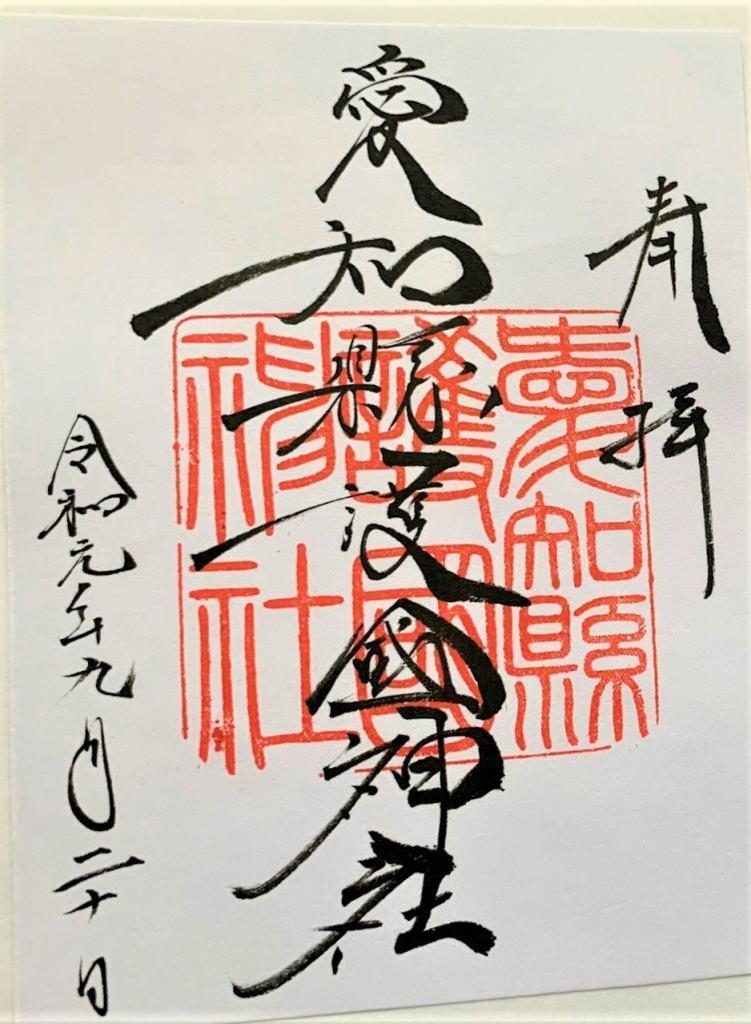 奉拝
愛知縣護國神社
愛知縣
護國
神社
令和元年九月二十日